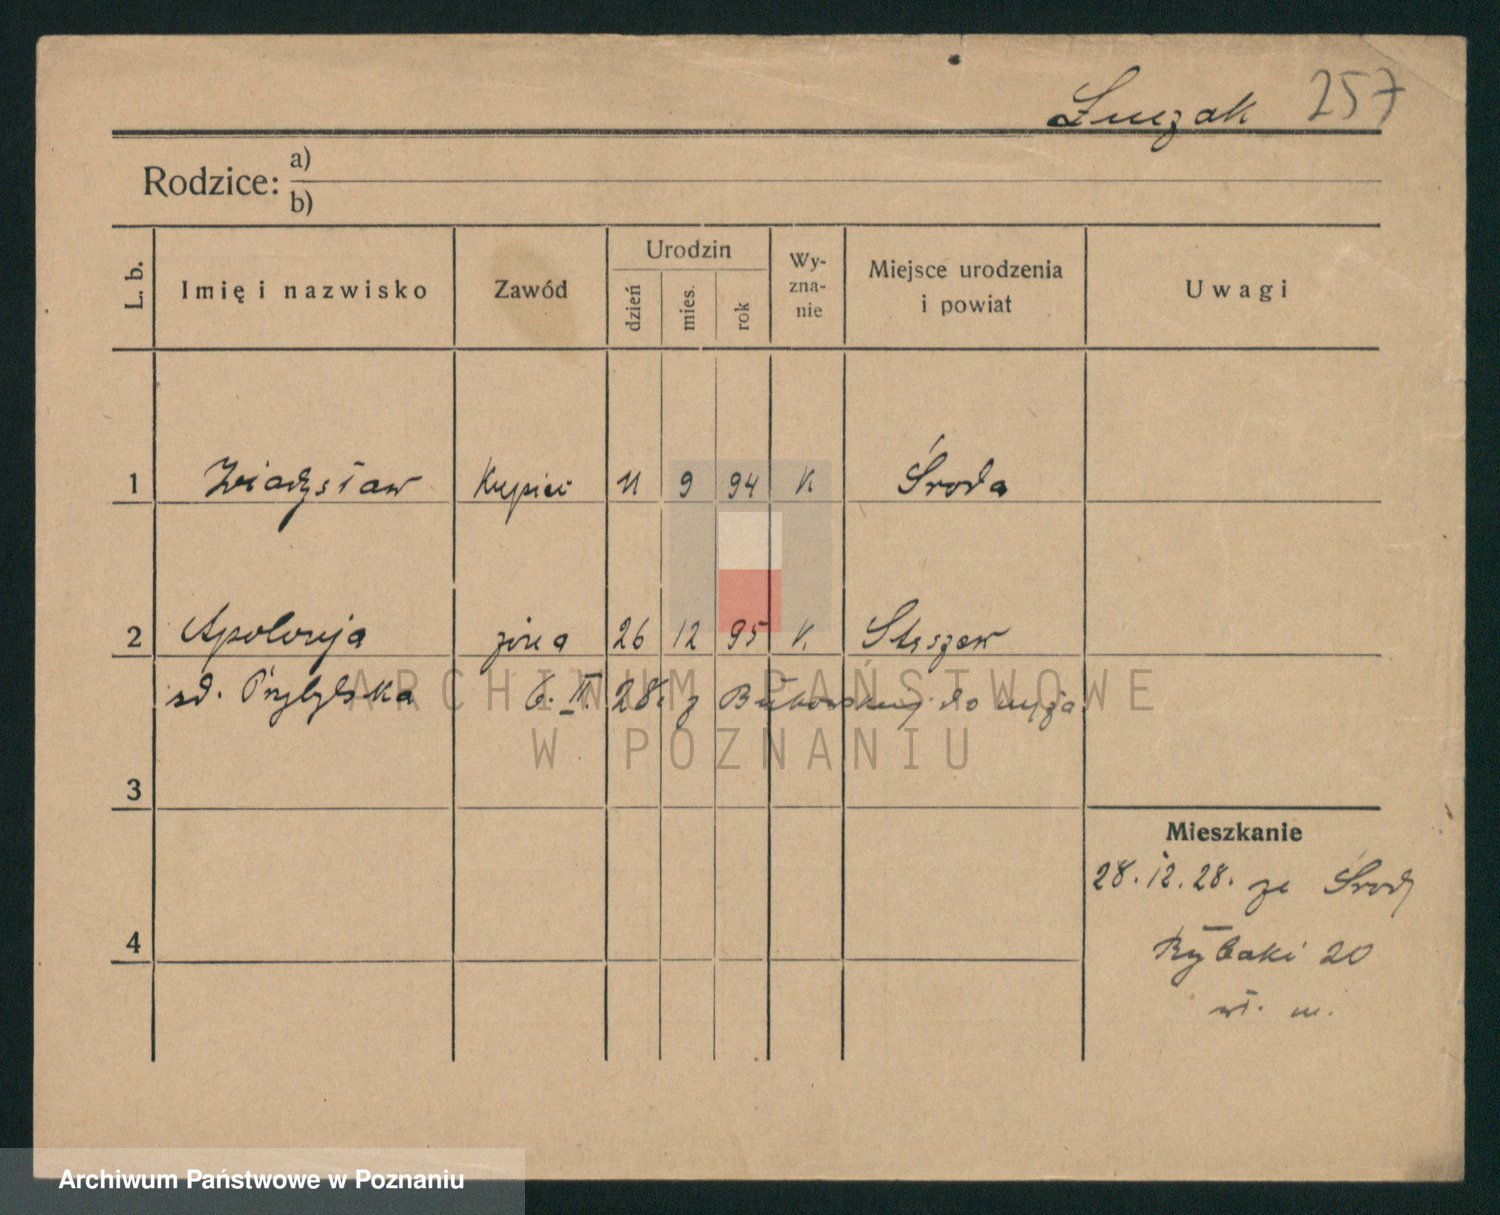 Łuczak 257
Rodzice: a)
b)
L. b. Imię i nazwisko Zawód Urodzin dzień mies. rok Wy-zna-nie Miejsce urodzenia i powiat Uwagi
1 Władysław Kupiec 11 9 94 K Środa
2 Apolonja żona 26 12 95 K Stęszew
zd. Przybylska 6. II. 28. z Bukowskiej do męża
3
Mieszkanie
28.12.28. ze Środy
4 Rybaki 20
wł. m.
ARCHIWUM PAŃSTWOWE
W POZNANIU
Archiwum Państwowe w Poznaniu